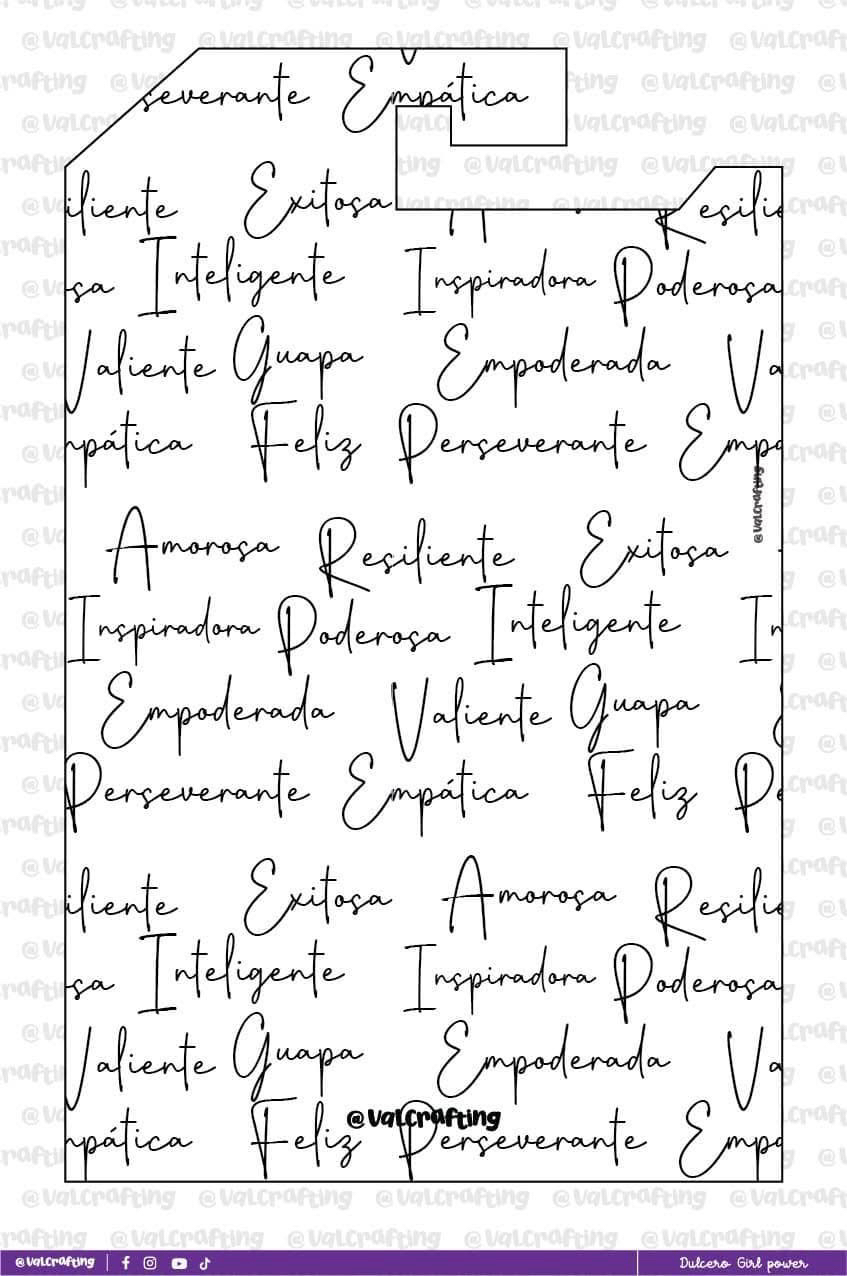 @valcrafting @valcrafting @valcrafting @valcrafting
severante Empática
iliente Exitosa Resili
sa Inteligente Inspiradora Poderosa
Valiente Guapa Empoderada Va
mpática Feliz Perseverante Empá
@valcrafting
Amorosa Resiliente Exitosa
Inspiradora Poderosa Inteligente In
Empoderada Valiente Guapa
Perseverante Empática Feliz Pe
iliente Exitosa Amorosa Resili
sa Inteligente Inspiradora Poderosa
Valiente Guapa Empoderada Va
@valcrafting
mpática Feliz Perseverante Empá
@valcrafting @valcrafting @valcrafting @valcrafting
@valcrafting Dulcero Girl power